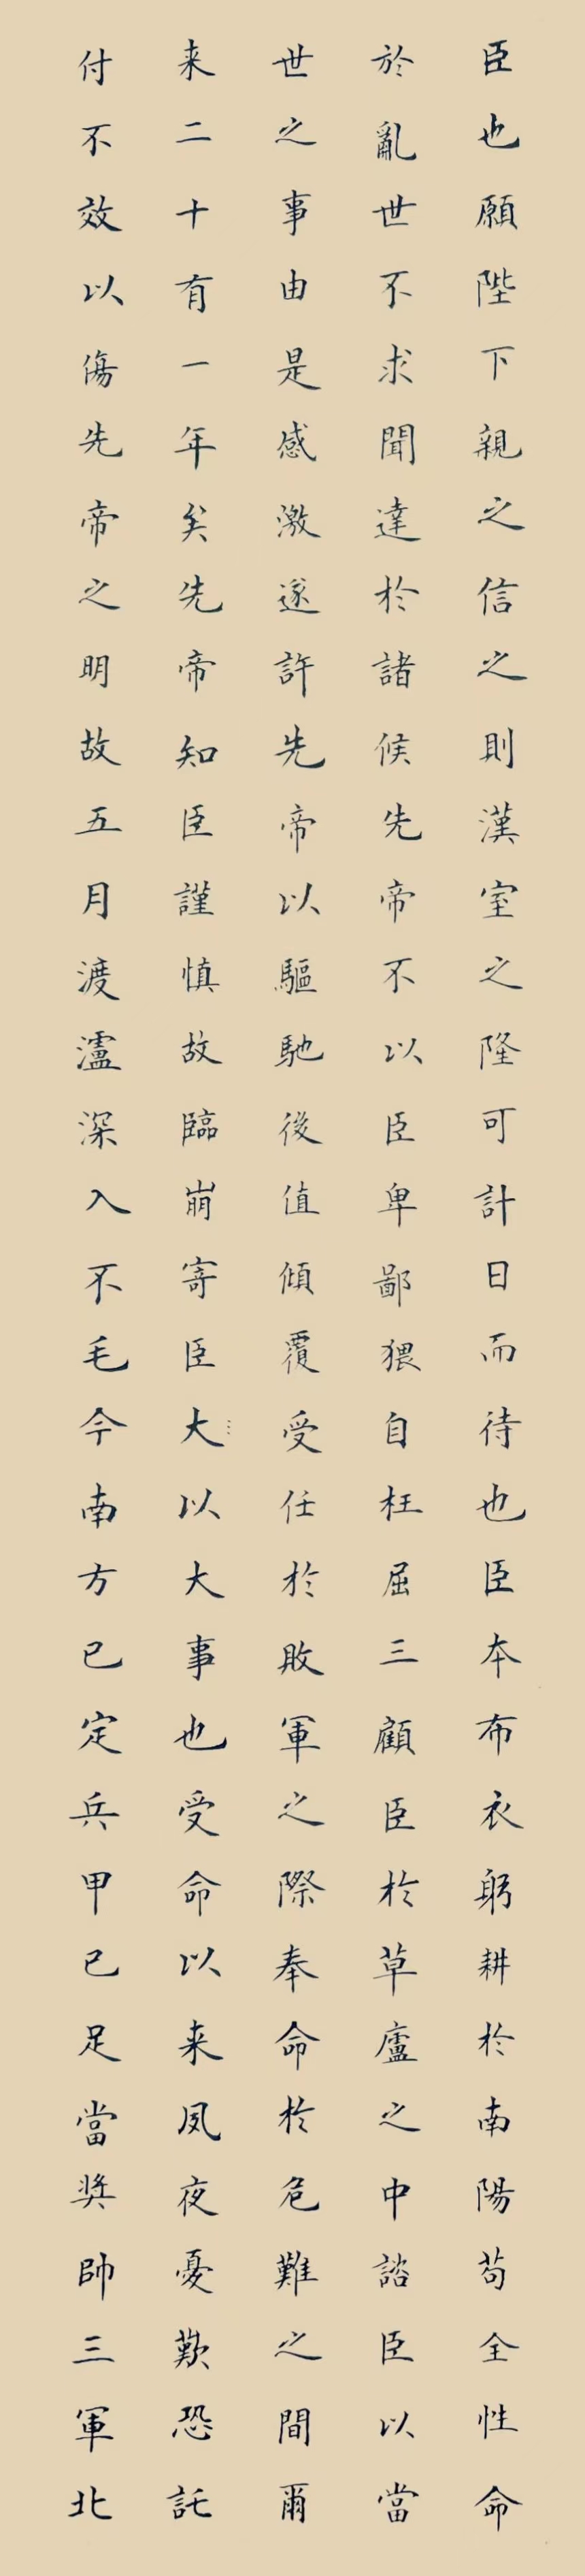 臣也願陛下親之信之則漢室之隆可計日而待也臣本布衣躬耕於南陽苟全性命
於亂世不求聞達於諸候先帝不以臣卑鄙猥自枉屈三顧臣於草廬之中諮臣以當
世之事由是感激遂許先帝以驅馳後值傾覆受任於敗軍之際奉命於危難之間爾
来二十有一年矣先帝知臣謹慎故臨崩寄臣大以大事也受命以来夙夜憂歎恐託
付不效以傷先帝之明故五月渡瀘深入不毛今南方已定兵甲已足當奬帥三軍北